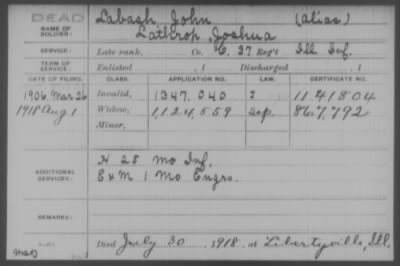 DEAD
NAME OF SOLDIER: Labagh, John (alias)
Lathrop, Joshua
SERVICE: Late rank, Co. C, 37 Reg't Ill Inf.
TERM OF SERVICE: Enlisted , 1 Discharged , 1
DATE OF FILING. CLASS. APPLICATION NO. LAW. CERTIFICATE NO.
1906, Mar 26 Invalid, 1347,040 1141804
1918 Aug 1 Widow, 1,124,559 867,792
Minor,
ADDITIONAL SERVICES: 28 Mo Inf.
E & M 1 Mo Engrs.
REMARKS:
Died July 30 1918, at Libertyville, Ill.